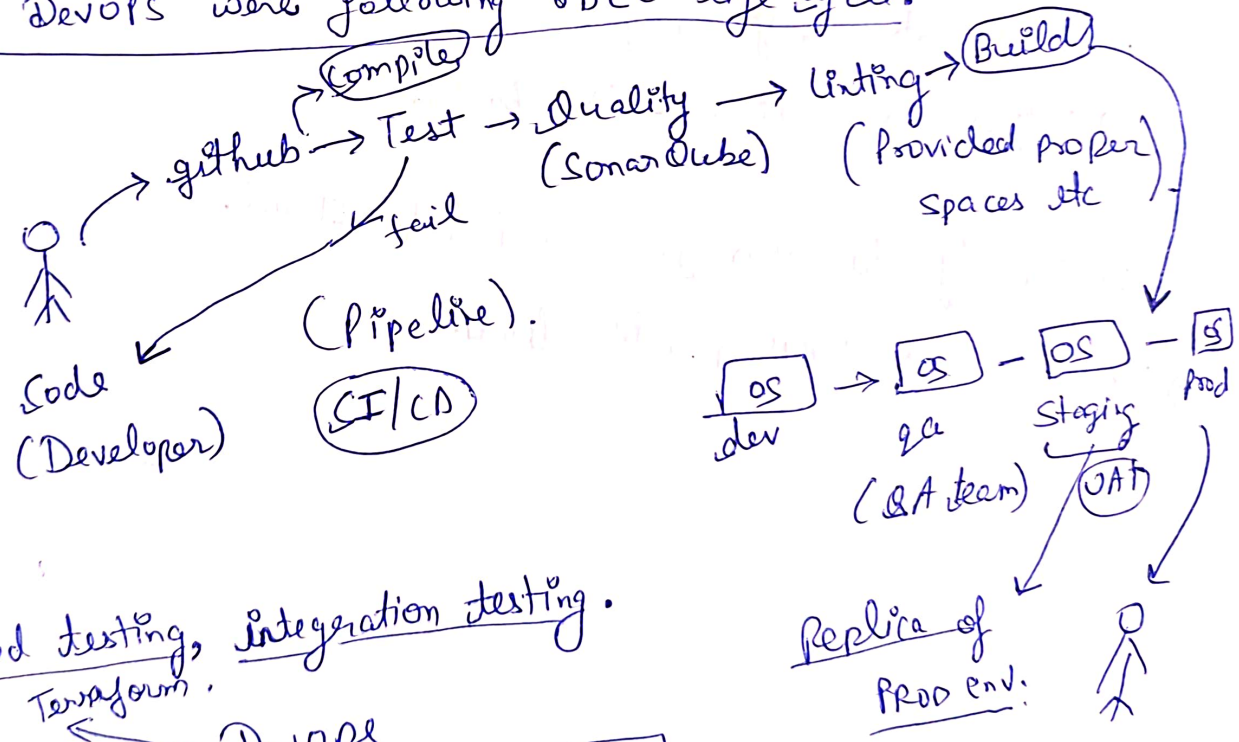 DevOps were following
Compile
Build
github → Test → Quality → linting →
(SonarQube)
(Provided proper
spaces etc
fail
(Pipeline).
Code
(Developer)
CI/CD
OS → OS - OS - OS
dev
qa
Staging
Prod
(QA team)
UAT
testing, integration testing.
Terraform.
Replica of
PROD env.